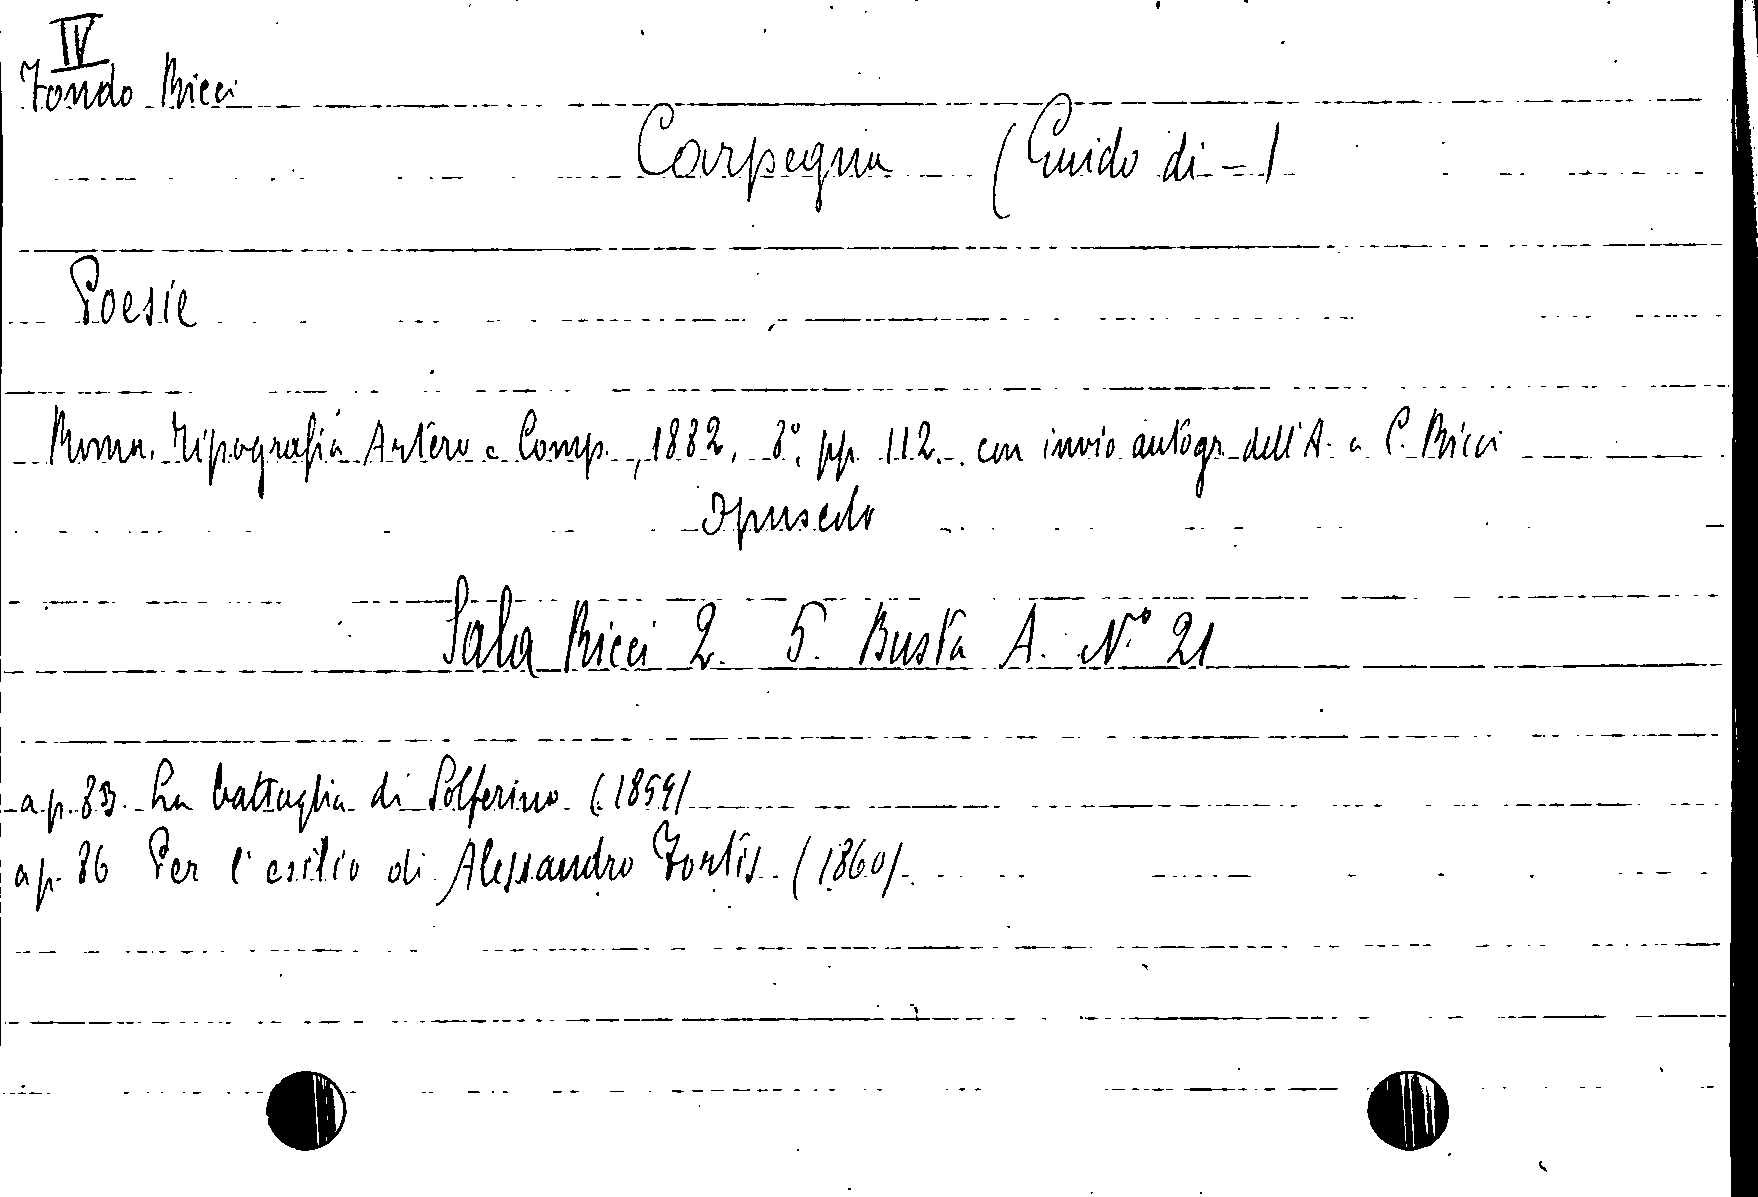 IV
Fondo Ricci
Carpegna (Guido di =)
Poesie
Roma. Tipografia Artero e Comp., 1882. 8°, pp. 112. con invio autogr. dell'A. a C. Ricci
Opuscolo
Sala Ricci 2. 5. Busta A. N.° 21
a p. 83. La battaglia di Solferino (1859)
a p. 86 Per l'esilio di Alessandro Fortis (1860).